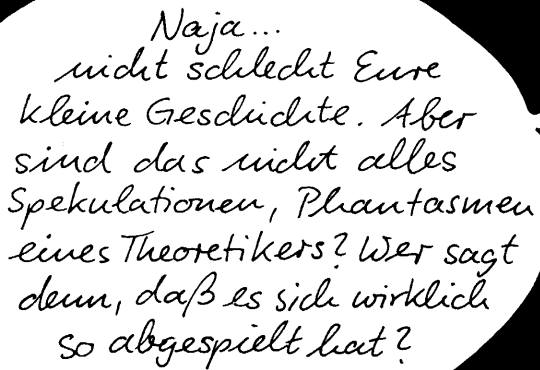 Naja...
nicht schlecht Eure
kleine Geschichte. Aber
sind das nicht alles
Spekulationen, Phantasmen
eines Theoretikers? Wer sagt
denn, daß es sich wirklich
so abgespielt hat?